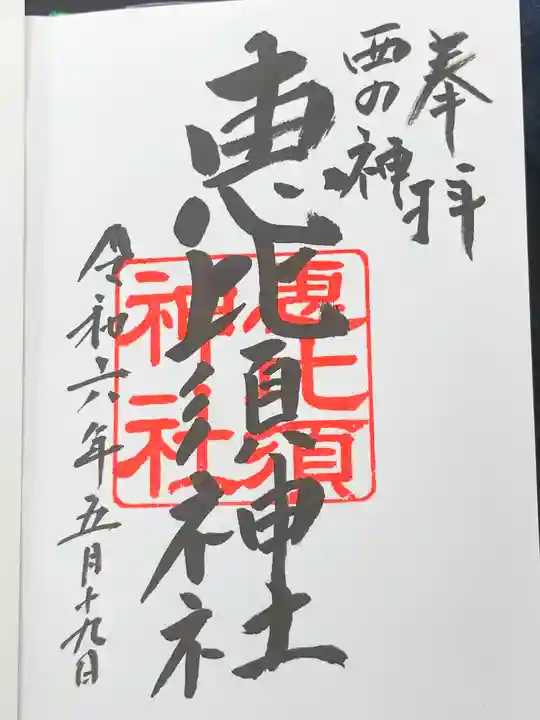 奉拝
西の神
恵比須神社
恵比須
神社
令和六年五月十九日